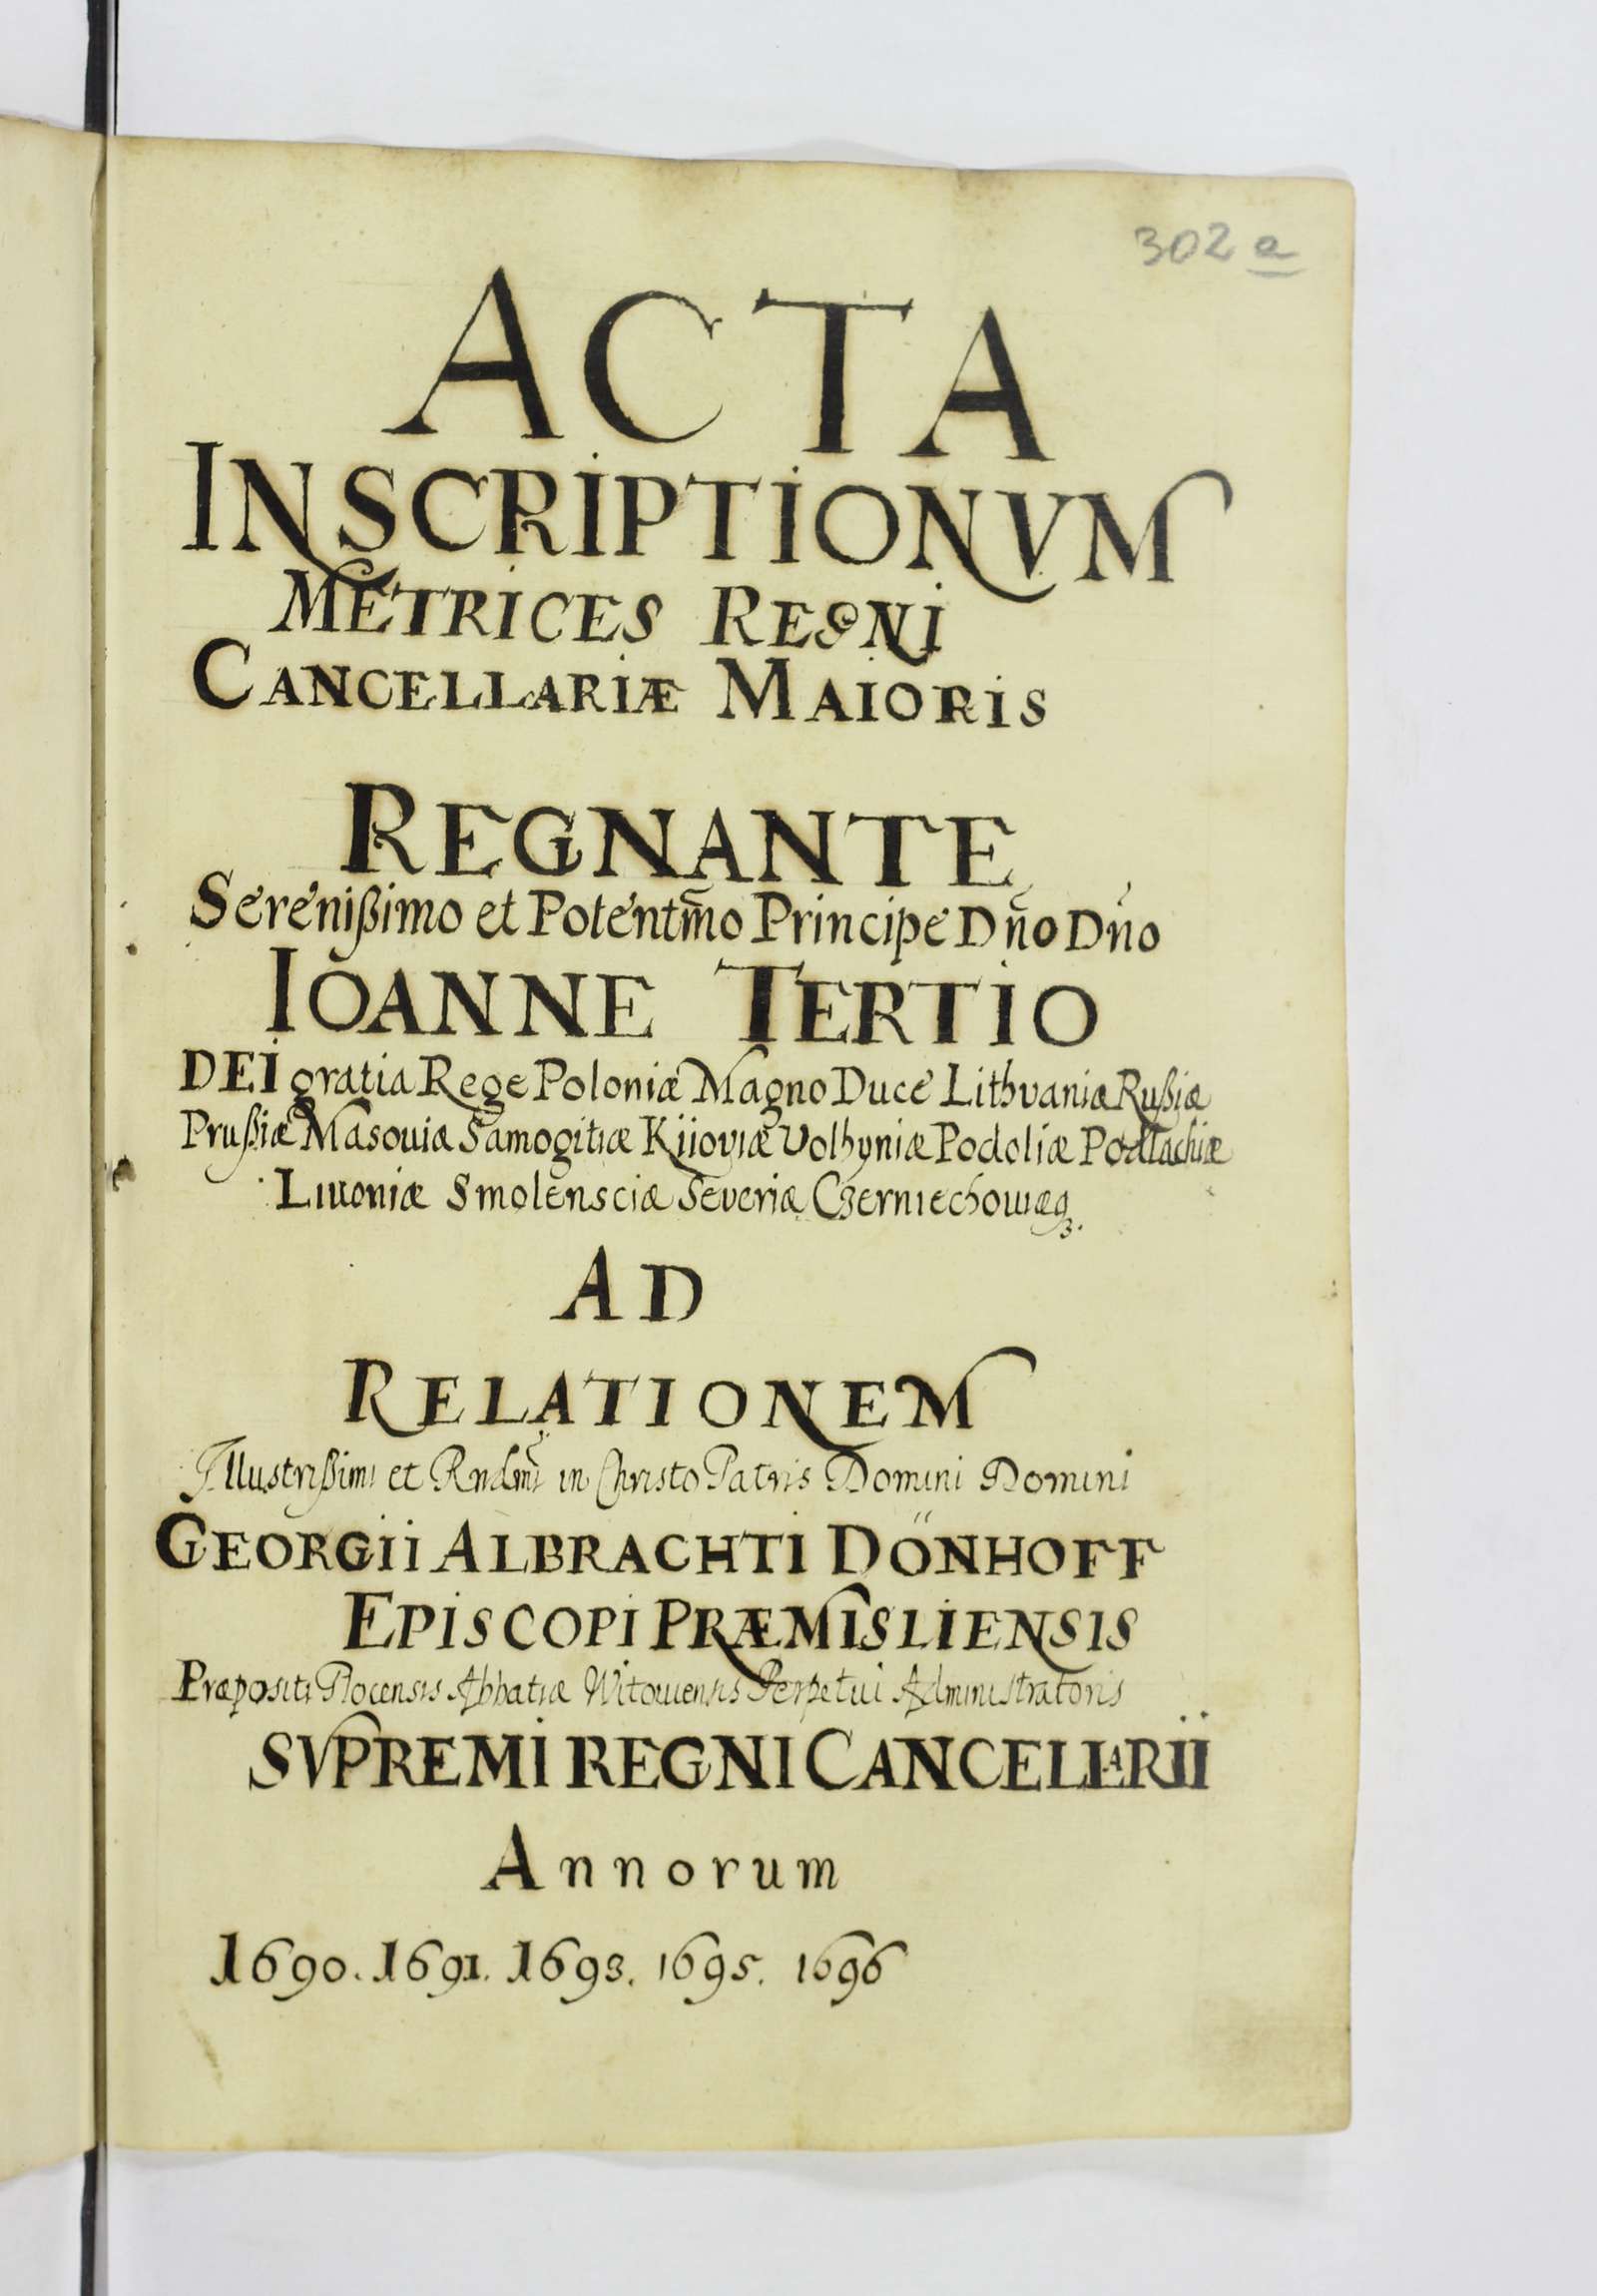 302 a
ACTA
INSCRIPTIONVM
METRICES REGNI
CANCELLARIÆ MAIORIS
REGNANTE
Serenißimo et Potentm̃o Principe Dño Dño
IOANNE TERTIO
DEI gratia Rege Poloniæ Magno Duce Lithvaniæ Rußiæ
Prußiæ Masouiæ Samogitiæ Kijoviæ Volhyniæ Podoliæ Podlachiæ
Liuoniæ Smolensciæ Severiæ Czerniechouiæq3.
AD
RELATIONEM
Illustrißimi et Rndm̃i in Christo Patris Domini Domini
GEORGII ALBRACHTI DÖNHOFF
EPISCOPI PRÆMISLIENSIS
Præpositi Plocensis Abbatiæ Witouensis Perpetui Administratoris
SVPREMI REGNI CANCELLARII
Annorum
1690. 1691. 1693. 1695. 1696